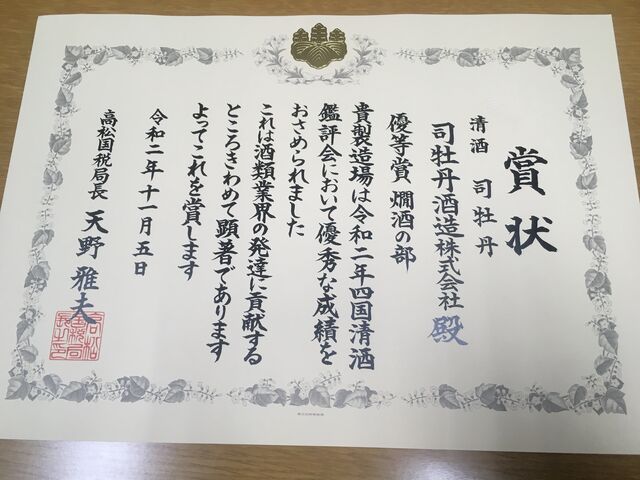 賞状
清酒 司牡丹
司牡丹酒造株式会社 殿
優等賞 燗酒の部
貴製造場は令和二年四国清酒
鑑評会において優秀な成績を
おさめられました
これは酒類業界の発達に貢献する
ところきわめて顕著であります
よってこれを賞します
令和二年十一月五日
高松国税局長 天野雅夫